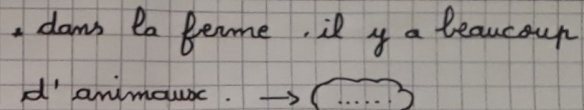 . dans la ferme . il y a beaucoup
d' animaux . → ......